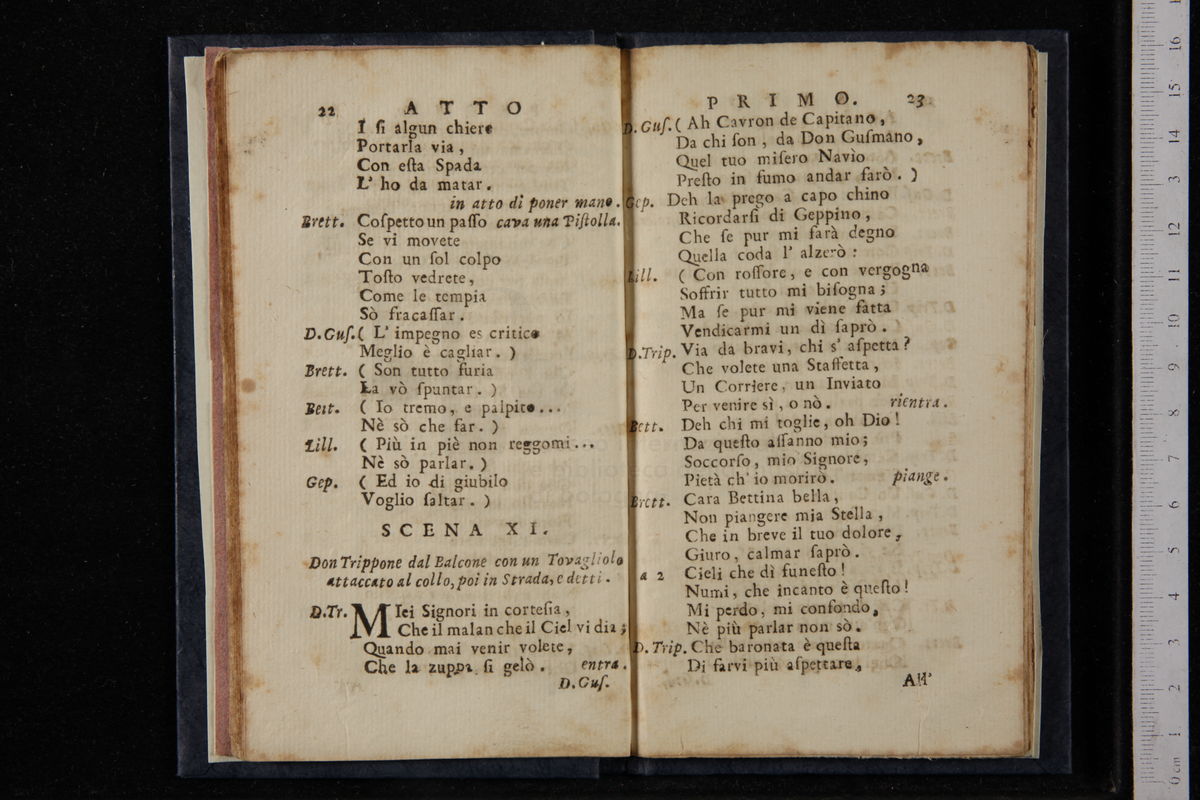 22 ATTO
I ſi algun chiere
Portarla via,
Con eſta Spada
L' ho da matar.
in atto di poner mano.
Brett. Coſpetto un paſſo cava una Piſtolla.
Se vi movete
Con un ſol colpo
Toſto vedrete,
Come le tempia
Sò fracaſſar.
D.Guſ. ( L' impegno es critico
Meglio è cagliar. )
Brett. ( Son tutto furia
La vò ſpuntar. )
Bett. ( Io tremo, e palpito...
Nè sò che far. )
Lill. ( Più in piè non reggomi...
Nè sò parlar. )
Gep. ( Ed io di giubilo
Voglio ſaltar. )
SCENA XI.
Don Trippone dal Balcone con un Tovagliolo
attaccato al collo, poi in Strada, e detti.
D.Tr. MIei Signori in corteſia,
Che il malan che il Ciel vi dia;
Quando mai venir volete,
Che la zuppa ſi gelò. entra.
D.Guſ.
PRIMO. 23
D.Guſ. ( Ah Cavron de Capitano,
Da chi ſon, da Don Guſmano,
Quel tuo miſero Navìo
Preſto in fumo andar farò. )
Gep. Deh la prego a capo chino
Ricordarſi di Geppino,
Che ſe pur mi farà degno
Quella coda l' alzerò:
Lill. ( Con roſſore, e con vergogna
Soffrir tutto mi biſogna;
Ma ſe pur mi viene fatta
Vendicarmi un dì ſaprò.
D.Trip. Via da bravi, chi s' aſpetta?
Che volete una Staffetta,
Un Corriere, un Inviato
Per venire sì, o nò. rientra.
Bett. Deh chi mi toglie, oh Dio!
Da queſto affanno mio;
Soccorſo, mio Signore,
Pietà ch' io morirò. piange.
Brett. Cara Bettina bella,
Non piangere mia Stella,
Che in breve il tuo dolore,
Giuro, calmar ſaprò.
a 2 Cieli che dì funeſto!
Numi, che incanto è queſto!
Mi perdo, mi confondo,
Nè più parlar non sò.
D. Trip. Che baronata è queſta
Di farvi più aſpettare,
All'